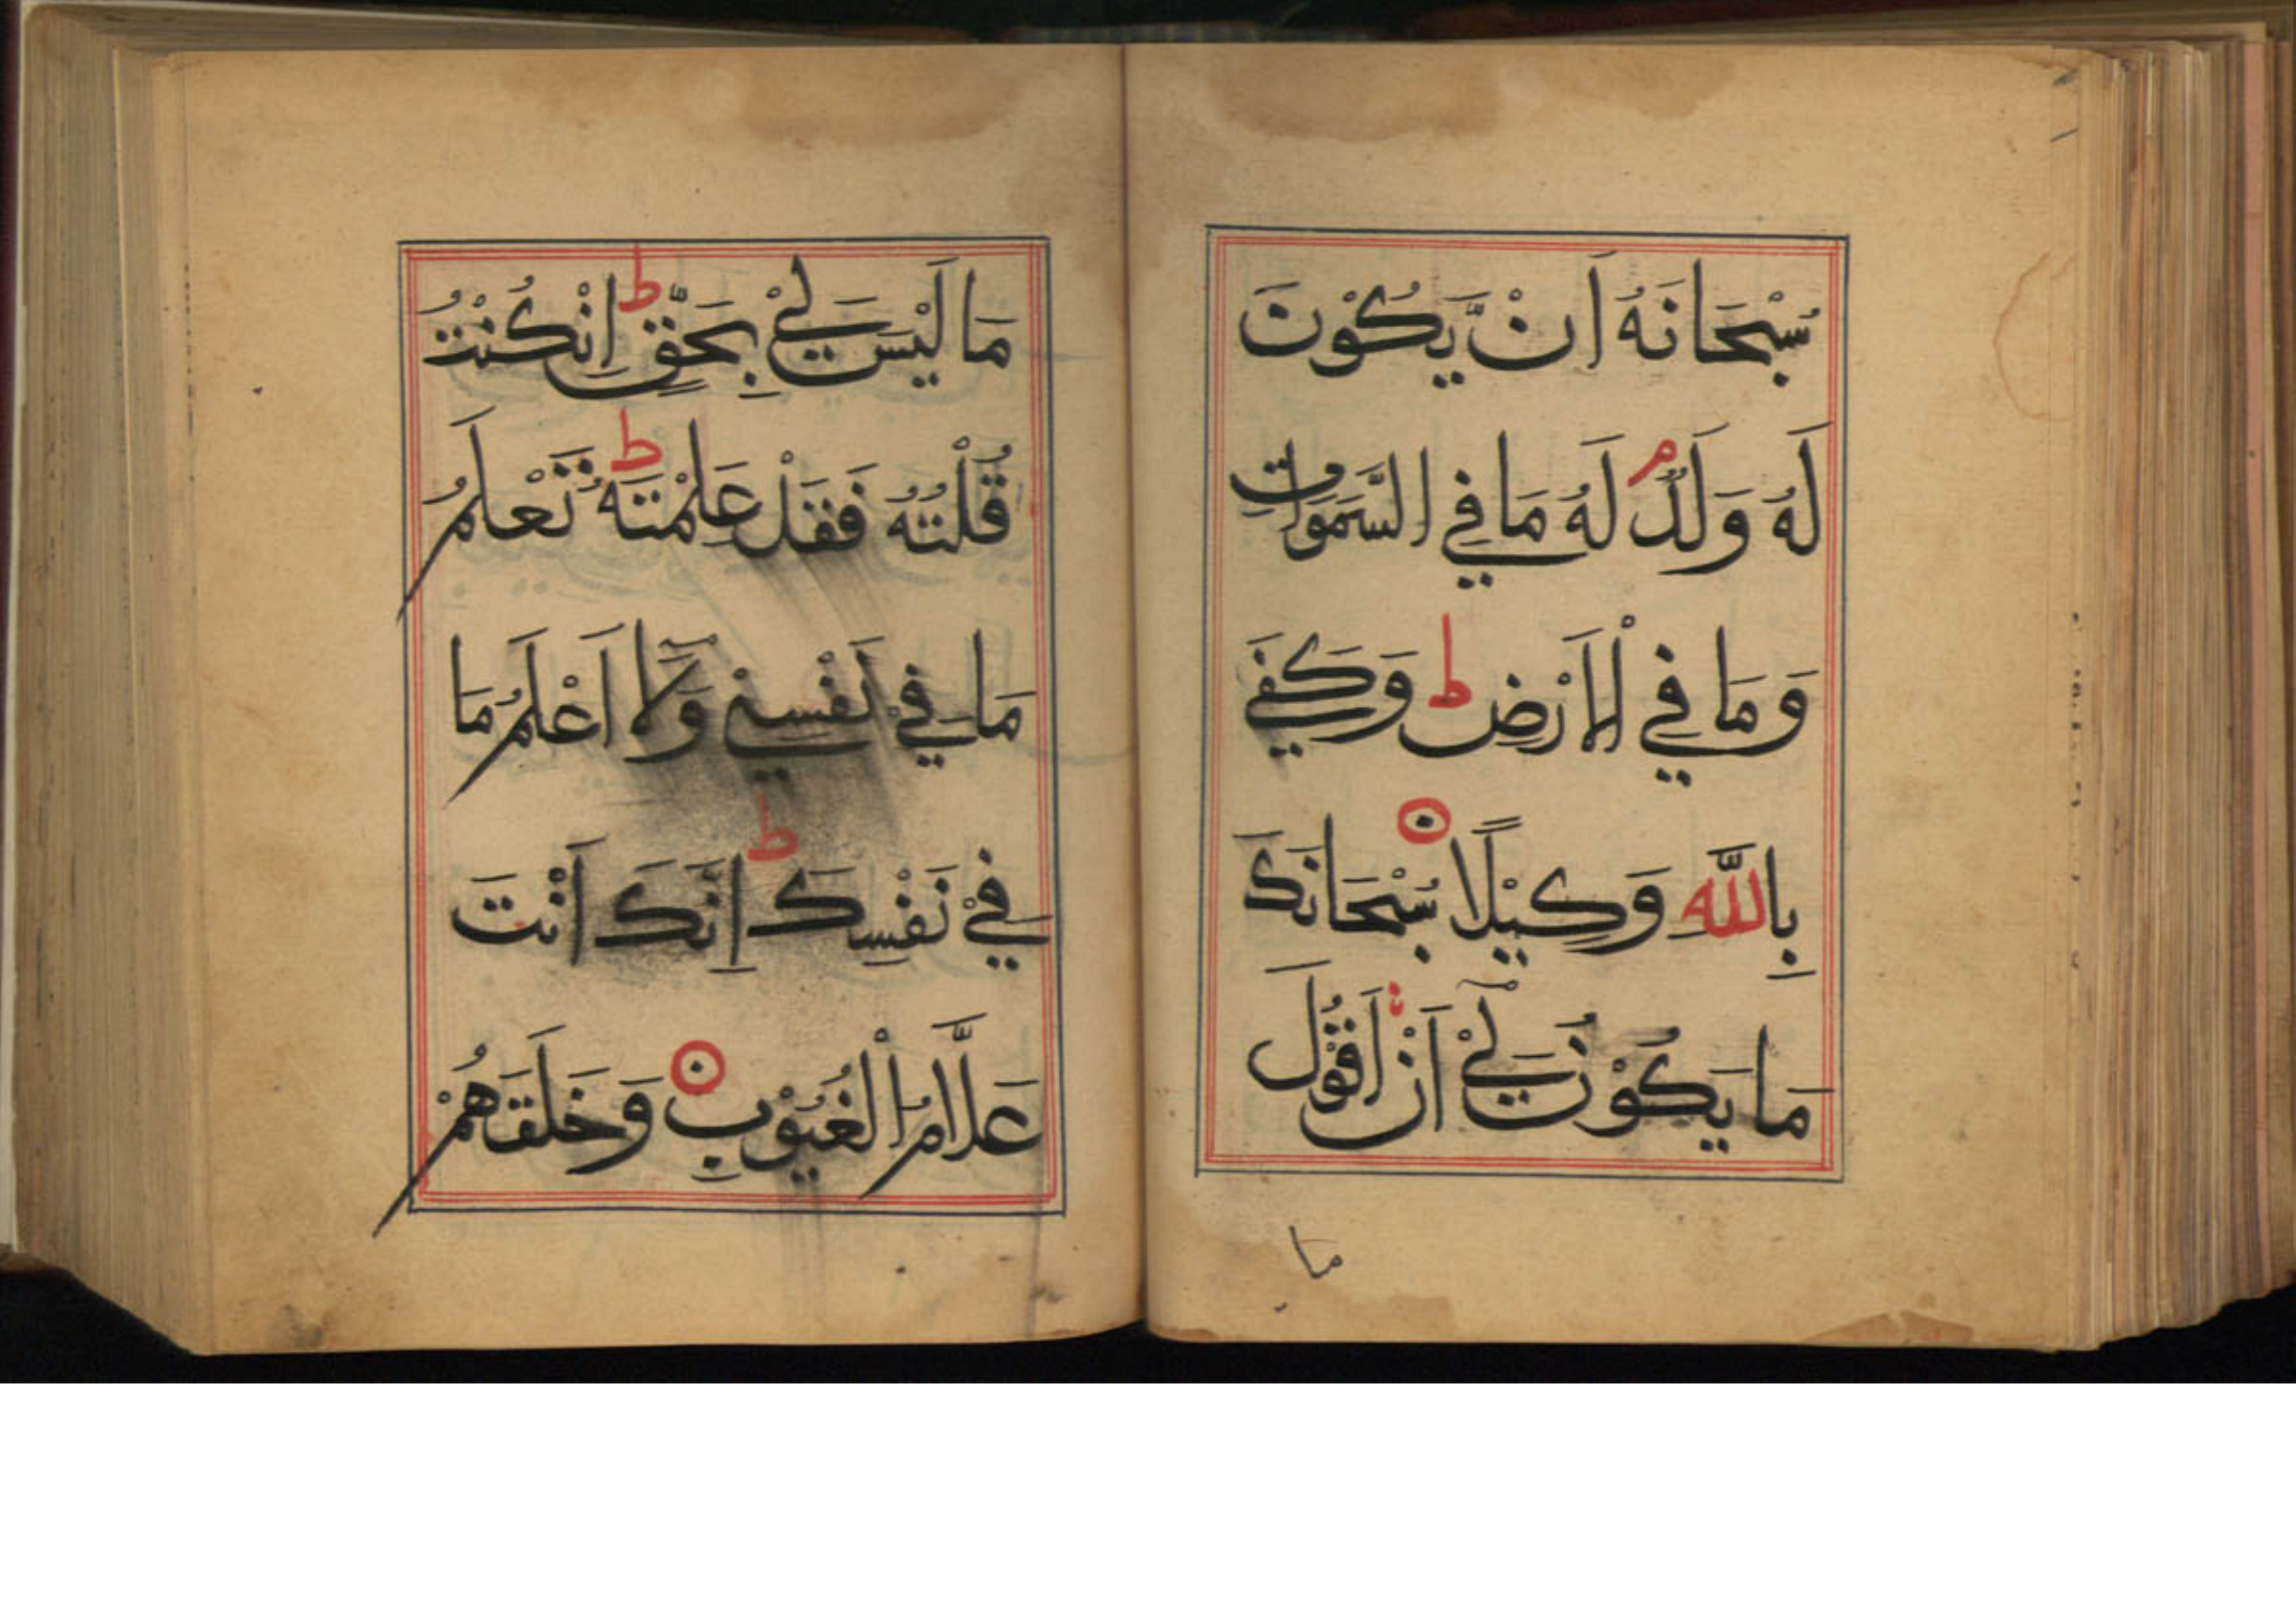 سُبْحَانَهُ اَنْ يَّكُوْنَ
لَهُ وَلَدٌ م لَهُ مَا فِي السَّمَوَاتِ
وَمَا فِي الْاَرْضِ ط وَكَفَي
بِاللّٰه وَكِيْلًا سُبْحَانَكَ
مَا يَكُوْنُ لِيْ اَنْ اَقُوْلَ
ما
مَا لَيْسَ لِيْ بِحَقٍّ ط اِنْ كُنْتُ
قُلْتُهُ فَقَدْ عَلِمْتَهُ ط تَعْلَمُ
مَا فِيْ نَفْسِيْ وَلَا اَعْلَمُ مَا
فِيْ نَفْسِكَ ط اِنَّكَ اَنْتَ
عَلَّامُ الْغُيُوْبِ وَخَلَقَهُمْ